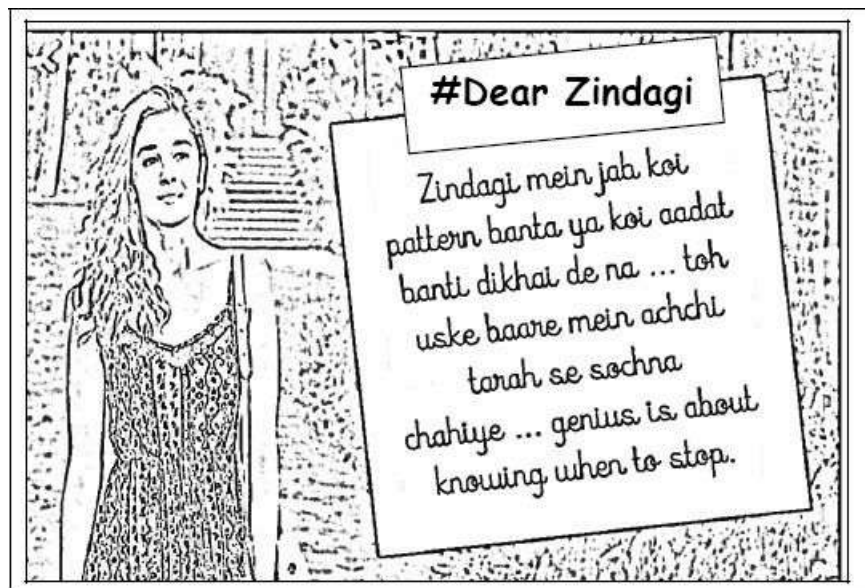 #Dear Zindagi
Zindagi mein jab koi
pattern banta ya koi aadat
banti dikhai de na ... toh
uske baare mein achchi
tarah se sochna
chahiye ... genius is about
knowing when to stop.